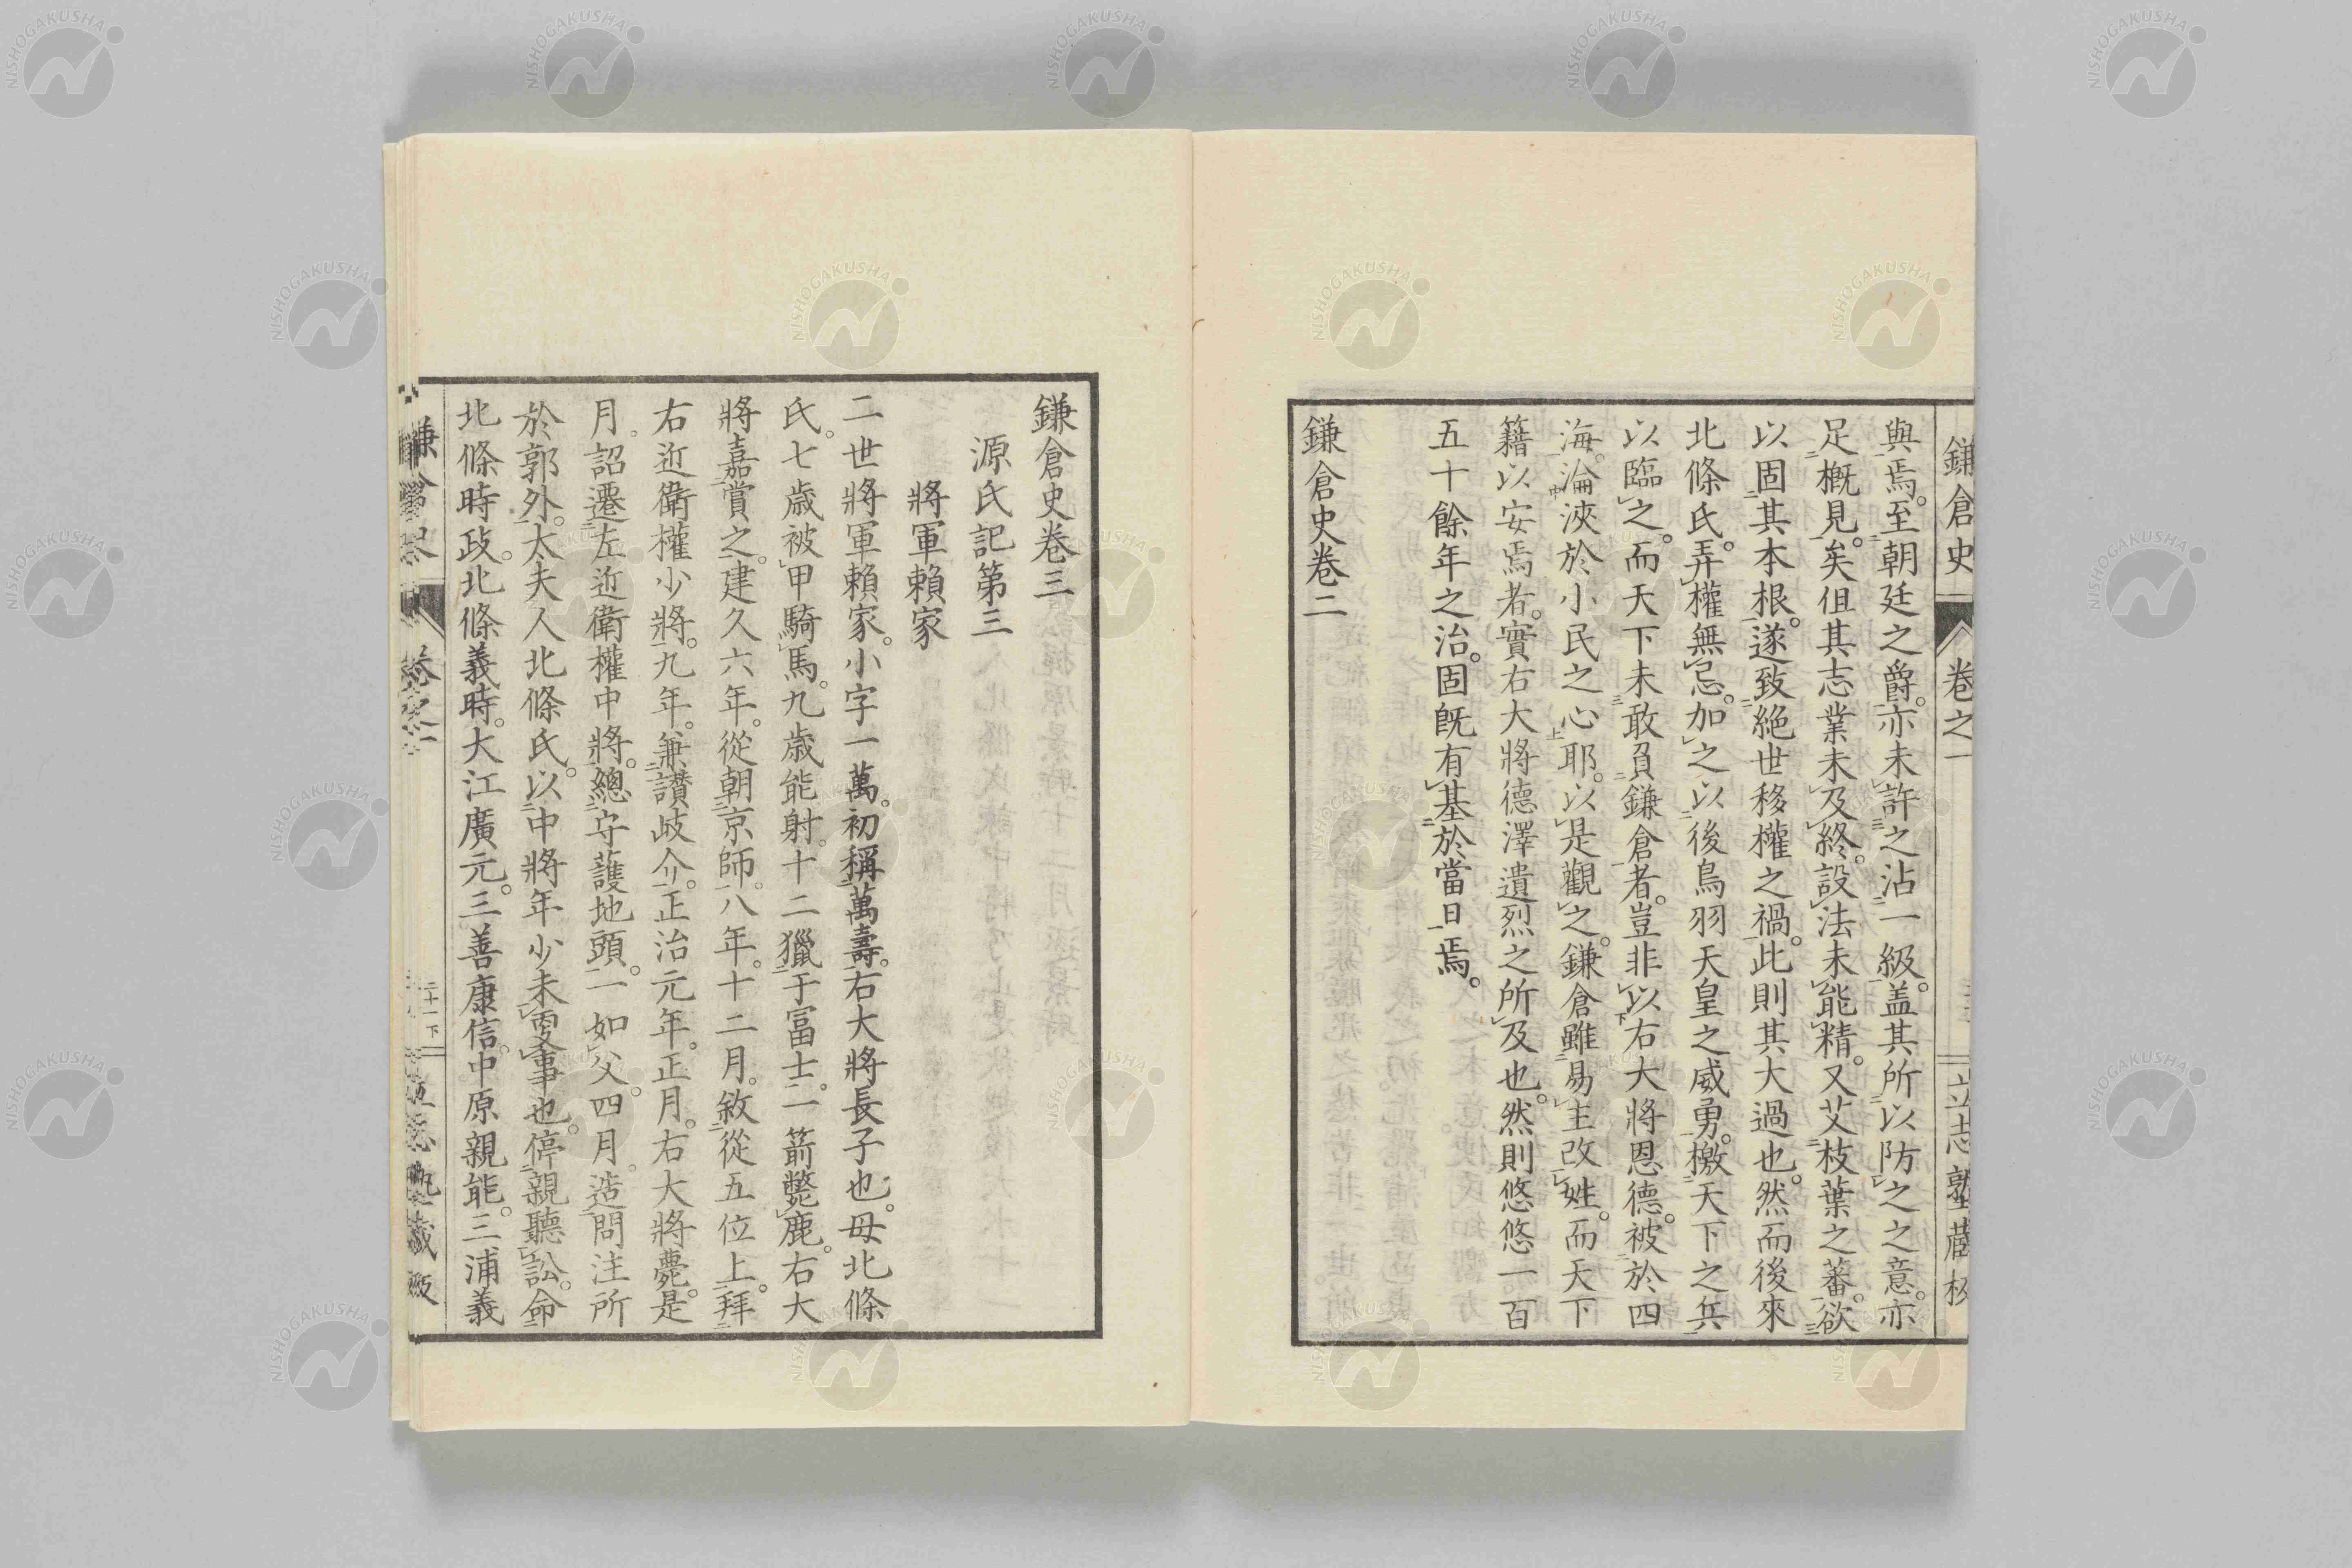 鎌倉史　卷之一　立志塾藏
與焉。至朝廷之爵。亦未許之沾一級。盖其所以防之之意。亦
足概見矣。但其志業未及終。設法未能精。又艾枝葉之蕃。欲
以固其本根。遂致絕世移權之禍。此則其大過也。然而後來
北條氏。弄權無忌。加之以後鳥羽天皇之威勇。檄天下之兵
以臨之。而天下未敢負鎌倉者。豈非以右大將恩德。被於四
海。淪浹於小民之心耶。以是觀之。鎌倉雖易主改姓。而天下
籍以安焉者。實右大將德澤遺烈之所及也。然則悠悠一百
五十餘年之治。固既有基於當日焉。
鎌倉史卷二
鎌倉史卷三
源氏記第三
將軍賴家
二世將軍賴家。小字一萬。初稱萬壽。右大將長子也。母北條
氏。七歲被甲騎馬。九歲能射。十二獵于富士。一箭斃鹿。右大
將嘉賞之。建久六年。從朝京師。八年。十二月。敘從五位上。拜
右近衛權少將。九年。兼讚岐介。正治元年。正月。右大將薨。是
月。詔遷左近衛權中將。總守護地頭。一如父。四月。造問注所
於郭外。太夫人北條氏。以中將年少未更事也。停親聽訟。命
北條時政。北條義時。大江廣元。三善康信。中原親能。三浦義
二十一下
NISHOGAKUSHA